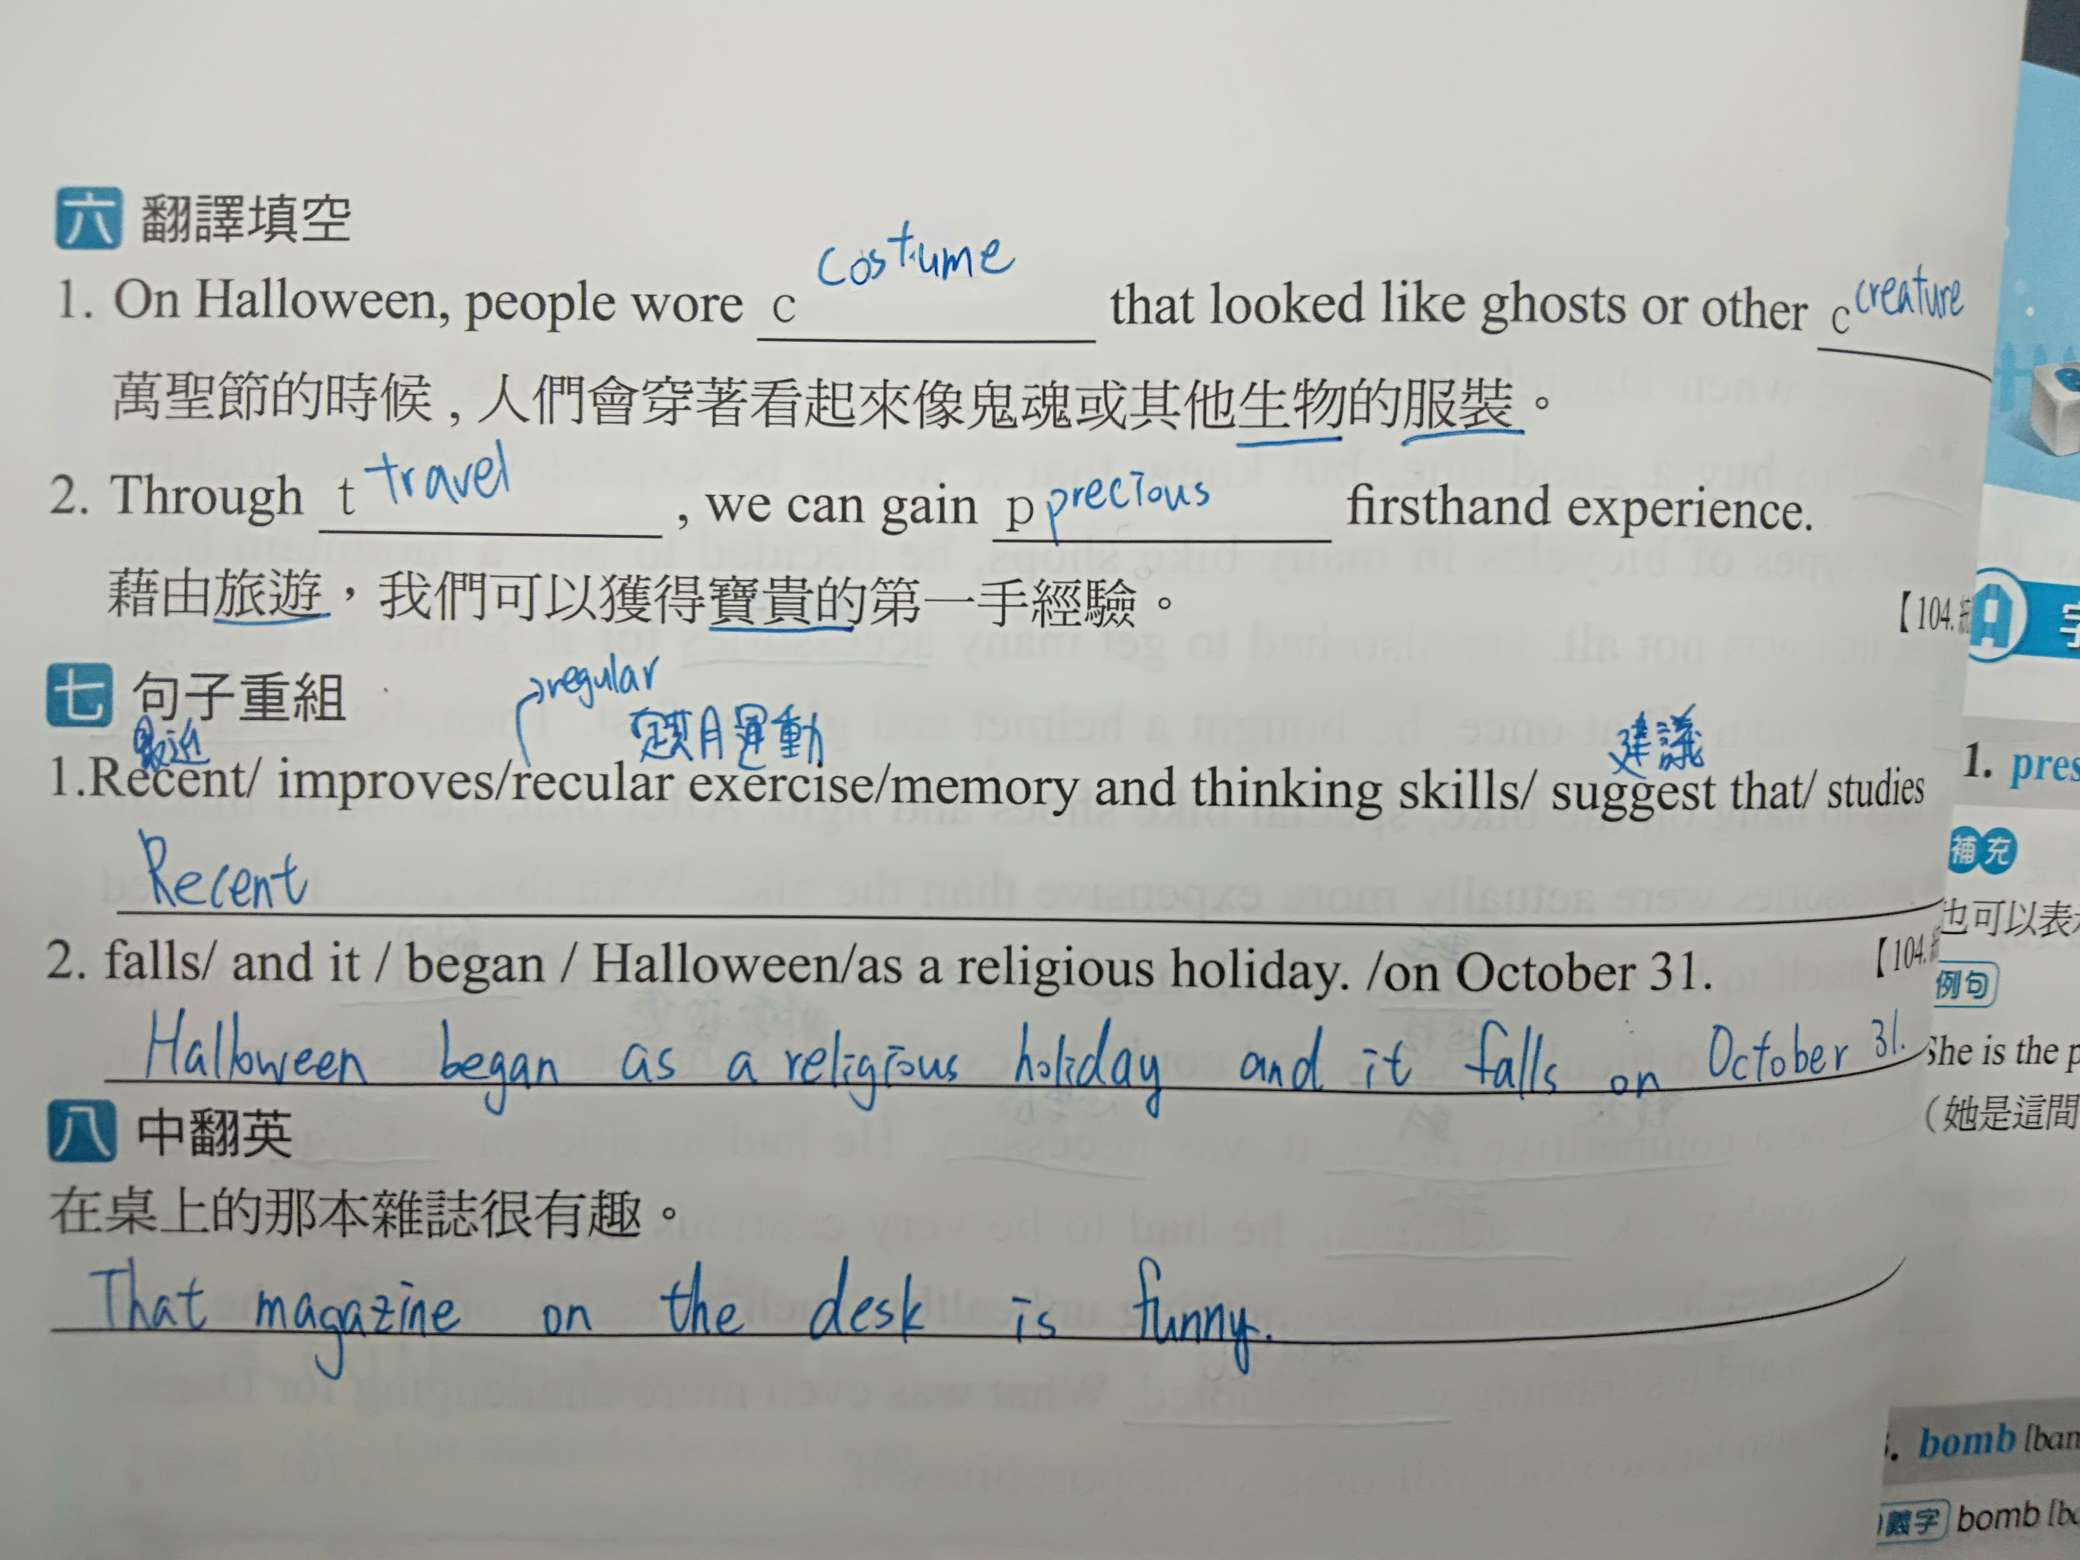 六 翻譯填空
costume
1. On Halloween, people wore c that looked like ghosts or other c creature
萬聖節的時候,人們會穿著看起來像鬼魂或其他生物的服裝。
2. Through t travel , we can gain p precious firsthand experience.
藉由旅遊,我們可以獲得寶貴的第一手經驗。
【104.
七 句子重組
regular
最近 定期運動 建議
1.Recent/ improves/recular exercise/memory and thinking skills/ suggest that/ studies
Recent
2. falls/ and it / began / Halloween/as a religious holiday. /on October 31.
【104.
Halloween began as a religious holiday and it falls on October 31.
八 中翻英
在桌上的那本雜誌很有趣。
That magazine on the desk is funny.
字
1. pres
補充
也可以表
例句
She is the p
(她是這間
. bomb [bam
義字 bomb [bo